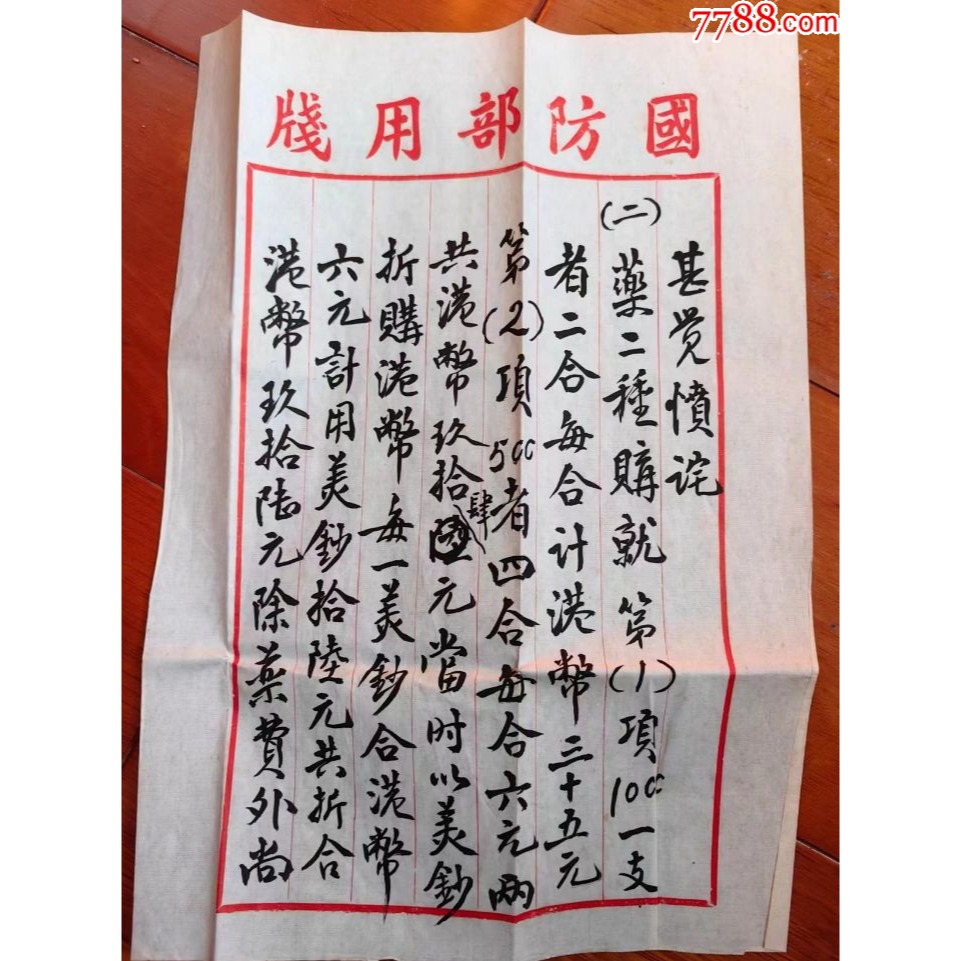 7788.com
國防部用牋
甚覚憤詫
(二)藥二種購就第(1)項10cc一支
者二合每合計港幣三十五元
第(2)項5cc者四合每合六元兩
共港幣玖拾肆元當时以美鈔
折購港幣每一美鈔合港幣
六元計用美鈔拾陸元共折合
港幣玖拾陆元除藥費外尚